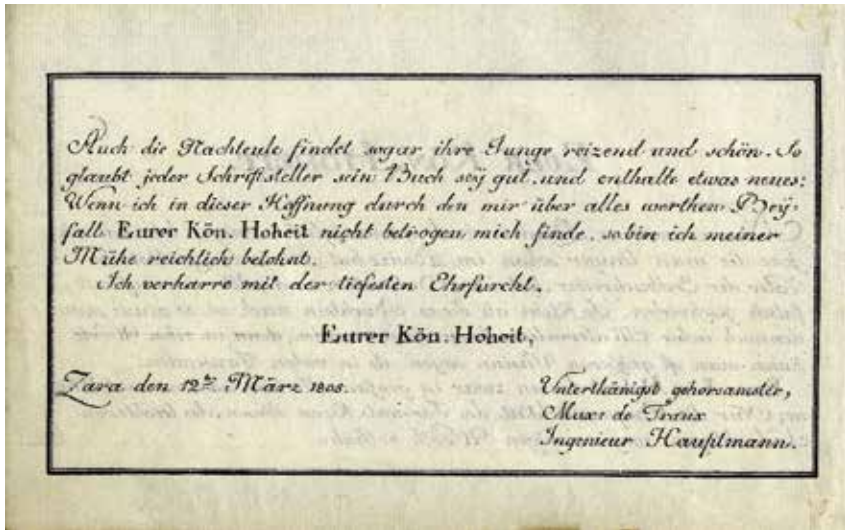 Auch die Nachteule findet sogar ihre Junge reizend und schön. So
glaubt jeder Schriftsteller sein Buch seÿ gut, und enthalte etwas neues:
Wenn ich in dieser Hoffnung durch den mir über alles werthen Beÿ-
fall Eurer Kön. Hoheit nicht betrogen mich finde, so bin ich meiner
Mühe reichlich belohnt.
Ich verharre mit der tiefesten Ehrfurcht.
Eurer Kön. Hoheit,
Zara den 12ten März 1805.
Unterthänigst gehorsamster,
Max: de Traux
Ingenieur Hauptmann.